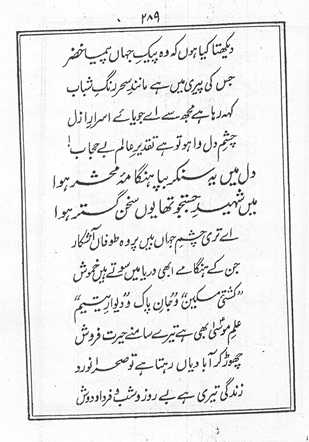 ۲۸۹
دیکھتا کیا ہوں کہ وہ پیک جہاں پیما خضر
جس کی پیری میں ہے مانند سحر رنگ شباب
کہہ رہا ہے مجھ سے اے جویائے اسرار ازل
چشم دل وا ہو تو ہے تقدیر عالم بے حجاب!
دل میں یہ سنکر بپا ہنگامۂ محشر ہوا
میں شہید جستجو تھا یوں سخن گستر ہوا
اے تری چشم جہاں بیں پر وہ طوفاں آشکار
جن کے ہنگامے ابھی دریا میں سوتے ہیں خموش
”کشتی مسکین“ و ”جان پاک“ و ”دیوار یتیم“
علم موسیٰ بھی ہے تیرے سامنے حیرت فروش
چھوڑ کر آبادیاں رہتا ہے تو صحرا نورد
زندگی تیری ہے بے روز و شب و فردا و دوش